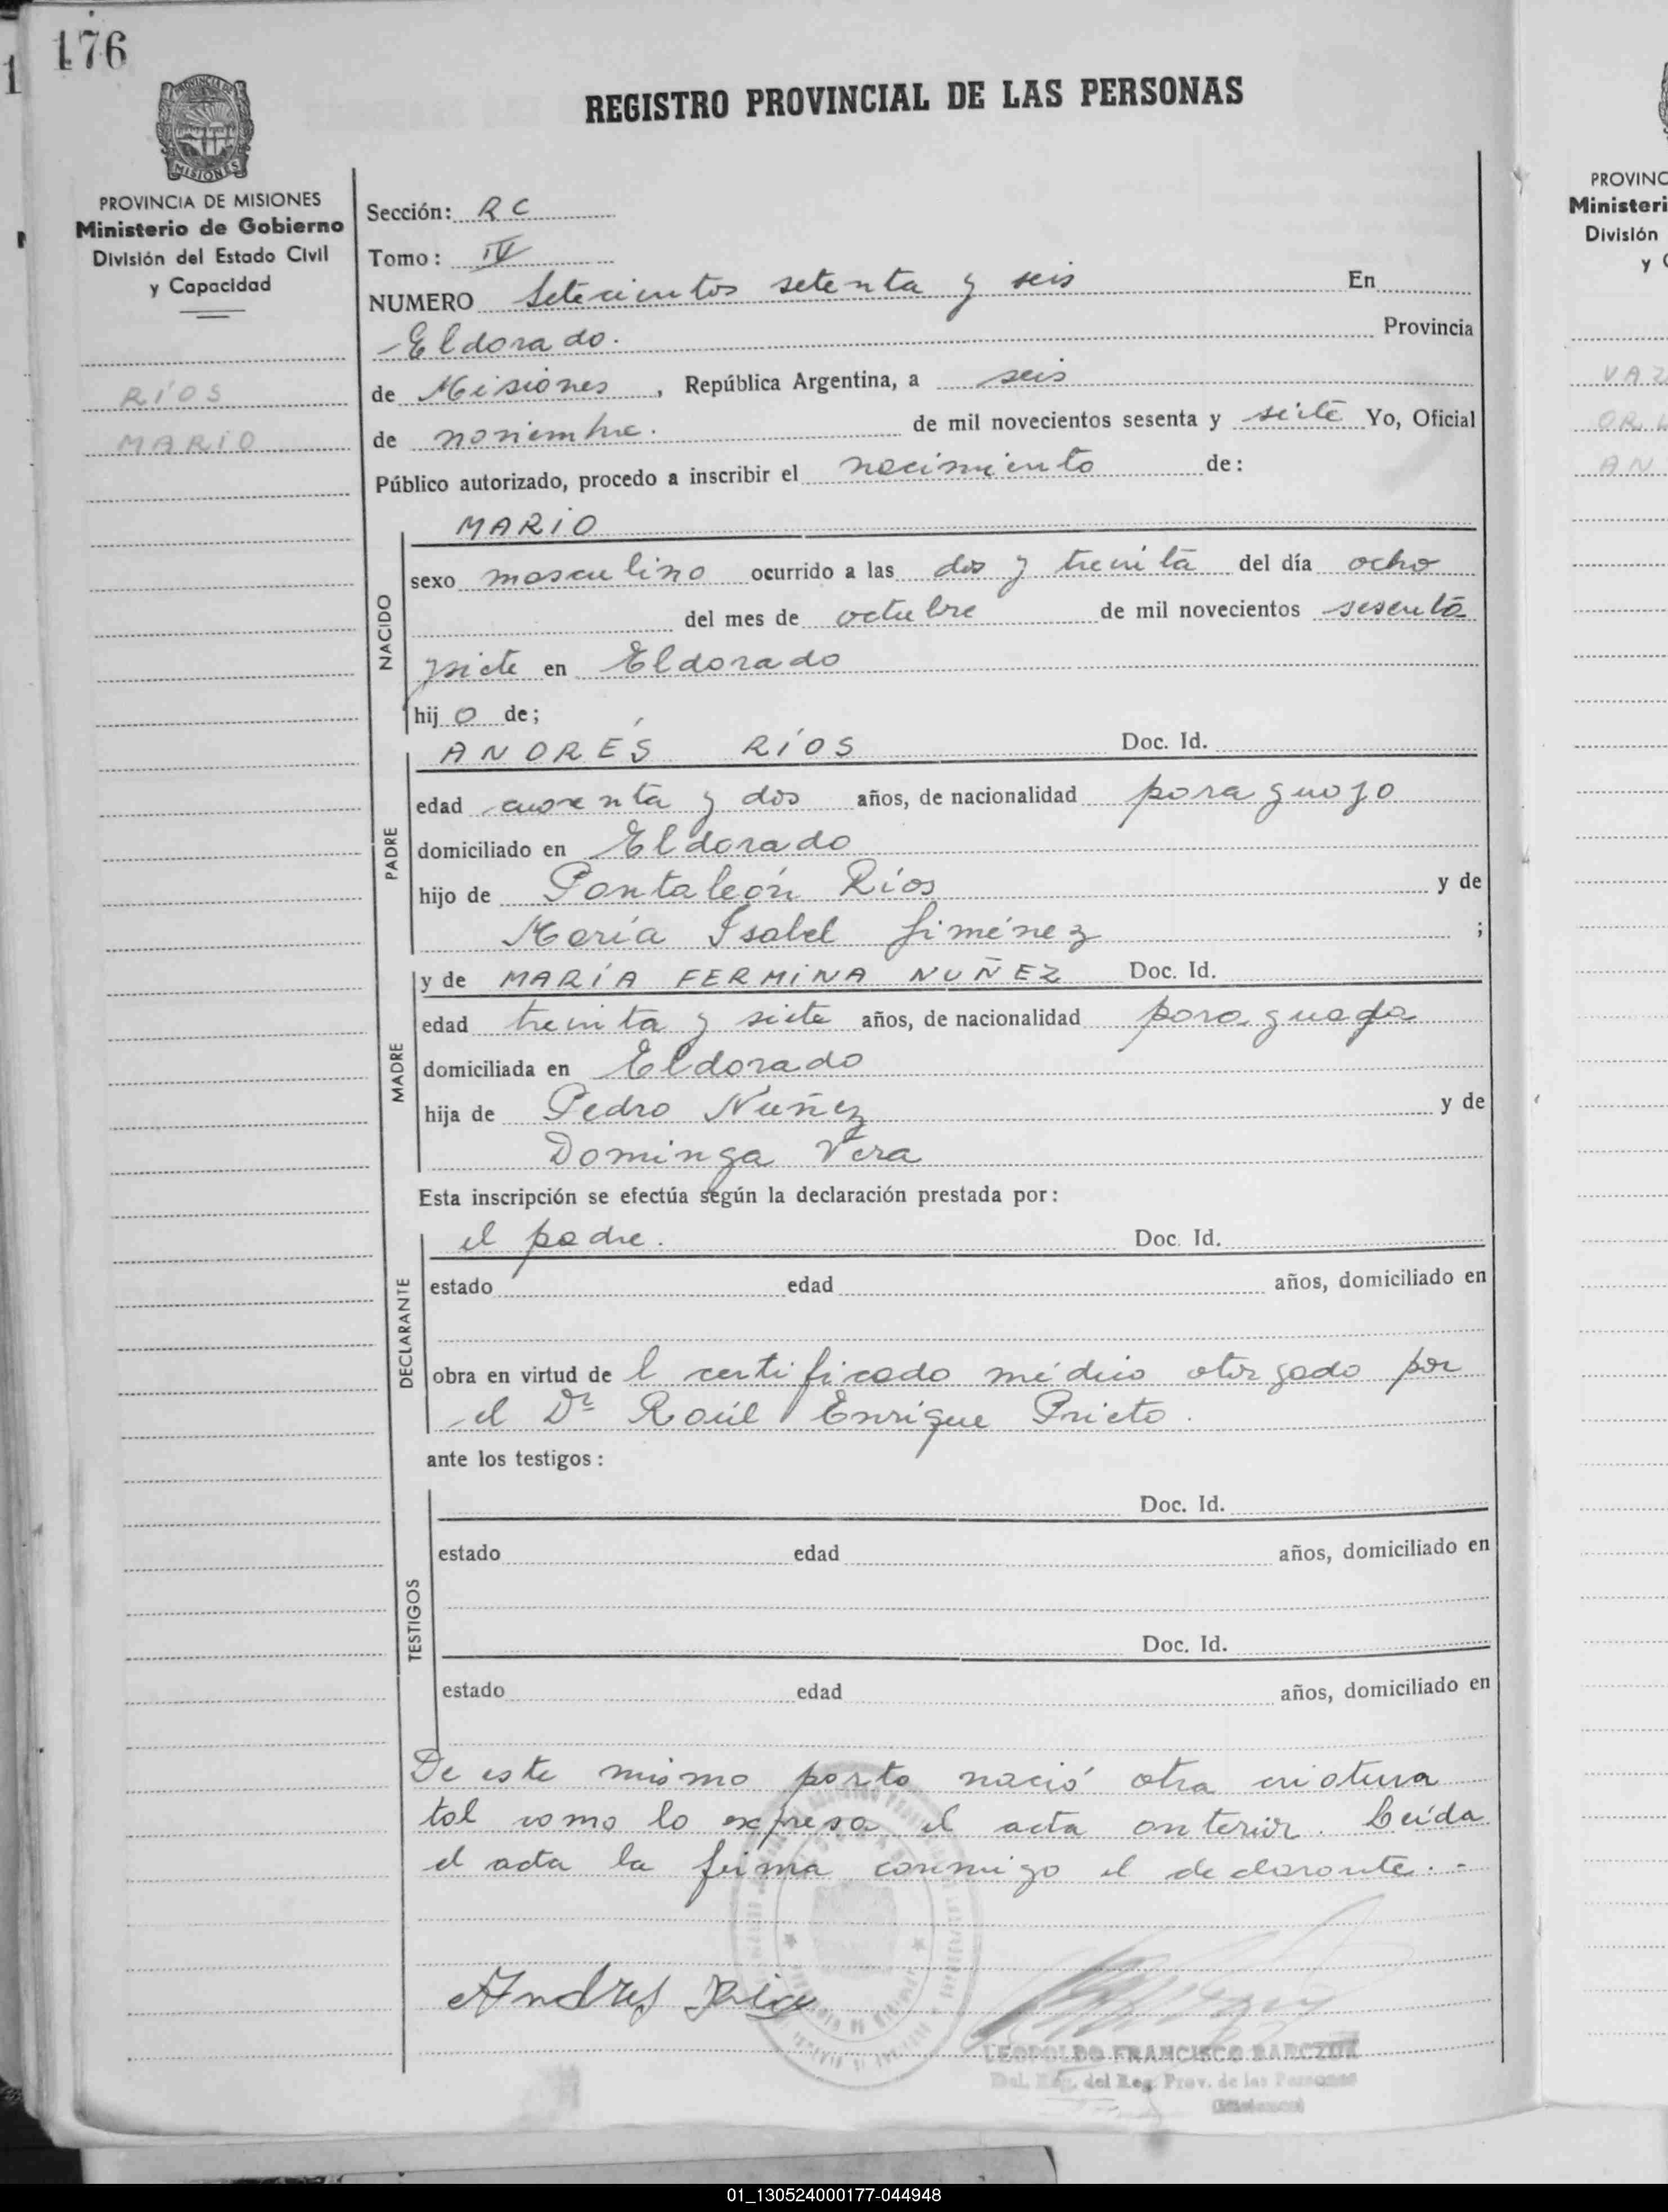 176
1
REGISTRO PROVINCIAL DE LAS PERSONAS
MISIONES
PROVINCIA DE MISIONES
Ministerio de Gobierno
División del Estado Civil
y Capacidad
RÍOS
MARIO
Sección: R C
Tomo: IV
NUMERO Setecientos setenta y seis En
Eldorado. Provincia
de Misiones, República Argentina, a seis
de noviembre. de mil novecientos sesenta y siete Yo, Oficial
Público autorizado, procedo a inscribir el nacimiento de:
NACIDO
MARIO
sexo masculino ocurrido a las dos y treinta del día ocho
del mes de octubre de mil novecientos sesenta
y siete en Eldorado
hijo de;
PADRE
ANDRÉS RÍOS Doc. Id.
edad cuarenta y dos años, de nacionalidad paraguayo
domiciliado en Eldorado
hijo de Pantaleón Ríos y de
María Isabel Jiménez ;
MADRE
y de MARÍA FERMINA NUÑEZ Doc. Id.
edad treinta y siete años, de nacionalidad paraguaya
domiciliada en Eldorado
hija de Pedro Nuñez y de
Dominga Vera
Esta inscripción se efectúa según la declaración prestada por:
DECLARANTE
el padre. Doc. Id.
estado edad años, domiciliado en
obra en virtud de l certificado médico otorgado por
el Dr Raúl Enrique Prieto.
ante los testigos:
TESTIGOS
Doc. Id.
estado edad años, domiciliado en
Doc. Id.
estado edad años, domiciliado en
De este mismo parto nació otra criatura
tal como lo expresa el acta anterior. Leída
el acta la firma conmigo el declarante.-
Andres Rios
LEOPOLDO FRANCISCO BARCZUK
del Reg. Prov. de las Personas
(Misiones)
PROVINC
Ministeri
División
y C
VAZ
OR
AN
01_130524000177-044948